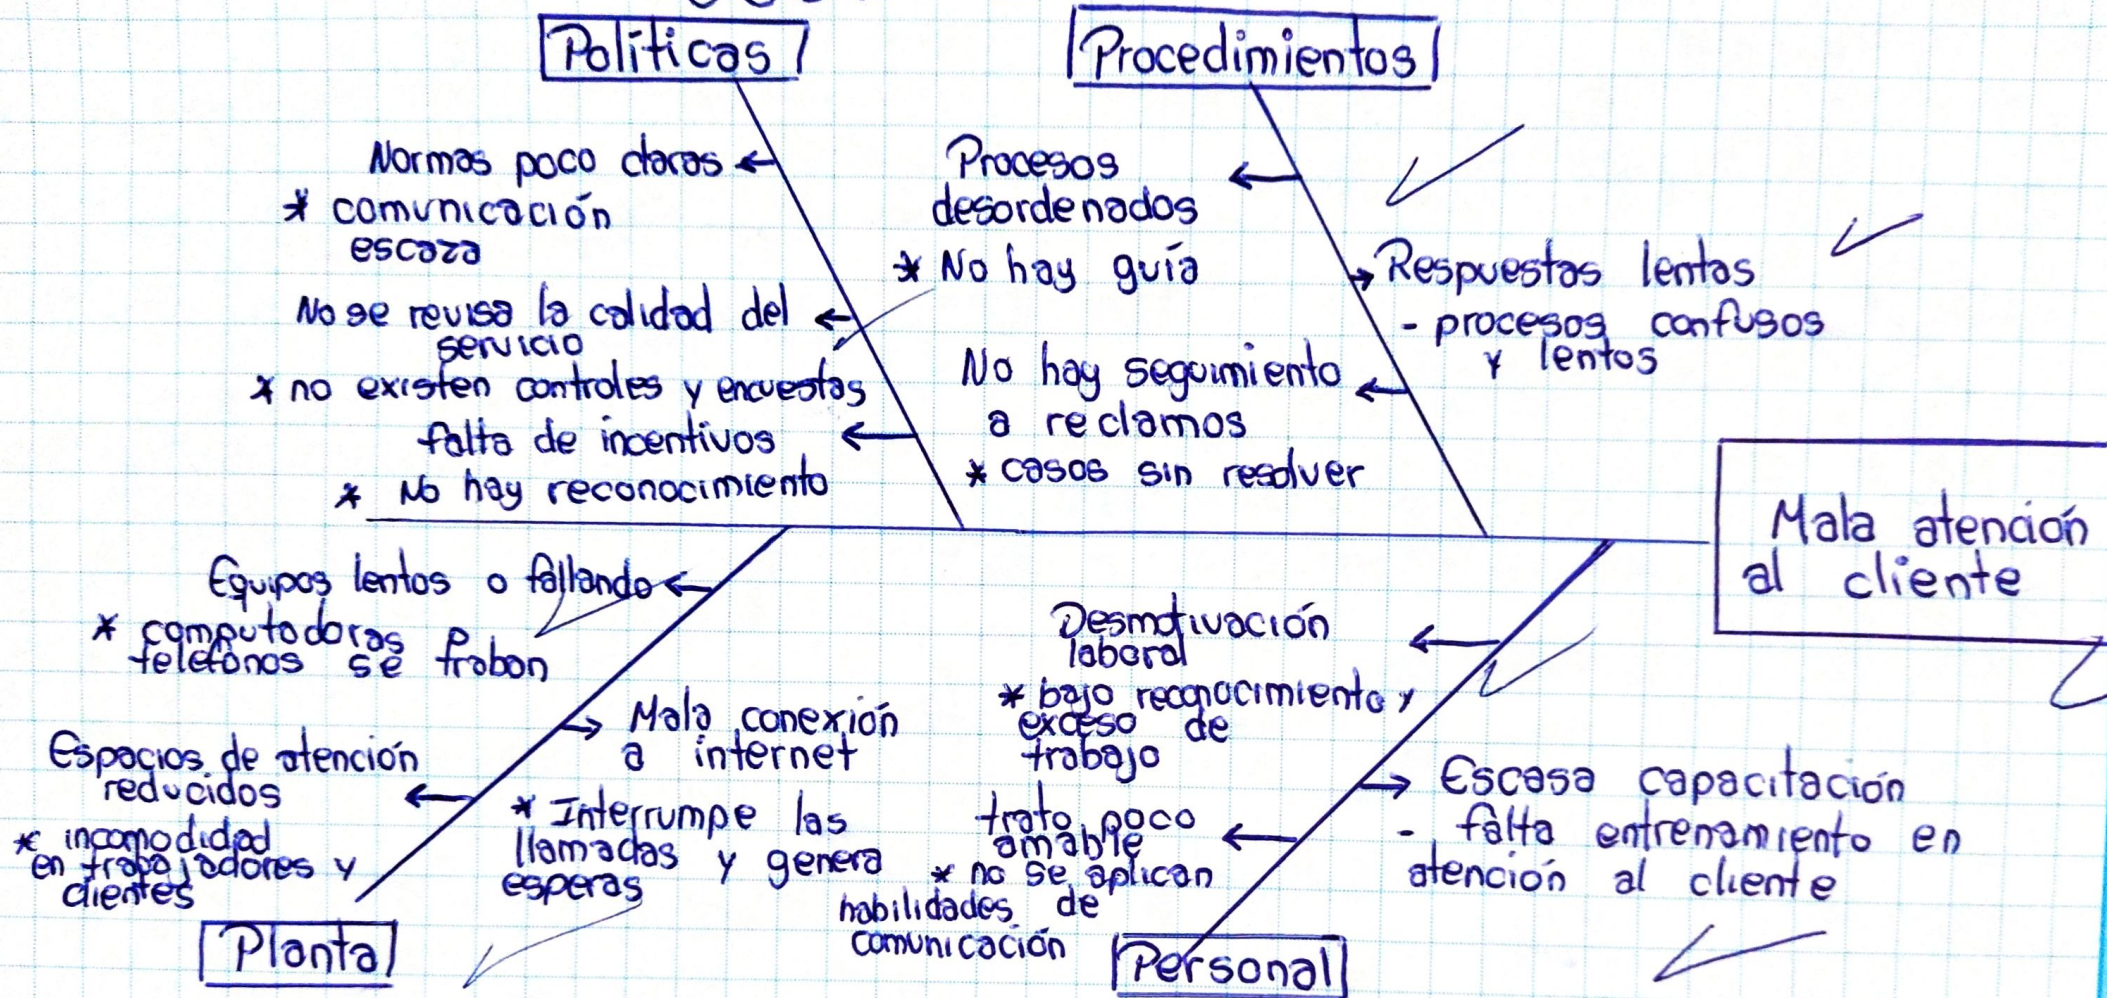 Políticas
Normas poco claras
* comunicación
escaza
No se revisa la calidad del
servicio
* no existen controles y encuestas
falta de incentivos
* No hay reconocimiento
Procedimientos
Procesos
desordenados
* No hay guía
No hay seguimiento
a reclamos
* casos sin resolver
Respuestas lentas
- procesos confusos
y lentos
Mala atención
al cliente
Equipos lentos o fallando
* computadoras
telefónos se traban
Mala conexión
a internet
* Interrumpe las
llamadas y genera
esperas
Espacios de atención
reducidos
* incomodidad
en trabajadores y
clientes
Planta
Desmotivación
laboral
* bajo reconocimiento y
exceso de
trabajo
trato poco
amable
* no se aplican
habilidades de
comunicación
Escasa capacitación
- falta entrenamiento en
atención al cliente
Personal